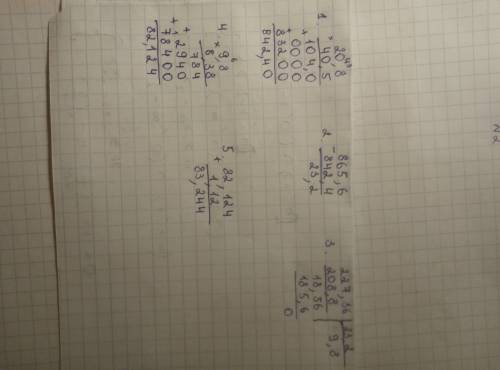 1. 20,8
× 40,5
104,0
+ 0000
+ 83200
842,40
2. 865,6
- 842,4
23,2
3. 227,36 | 23,2
208,8 | 9,8
18,56
185,6
0
4. 9,8
× 8,38
784
+ 2940
+ 78400
82,124
5. 82,124
+ 1,12
83,244
N2